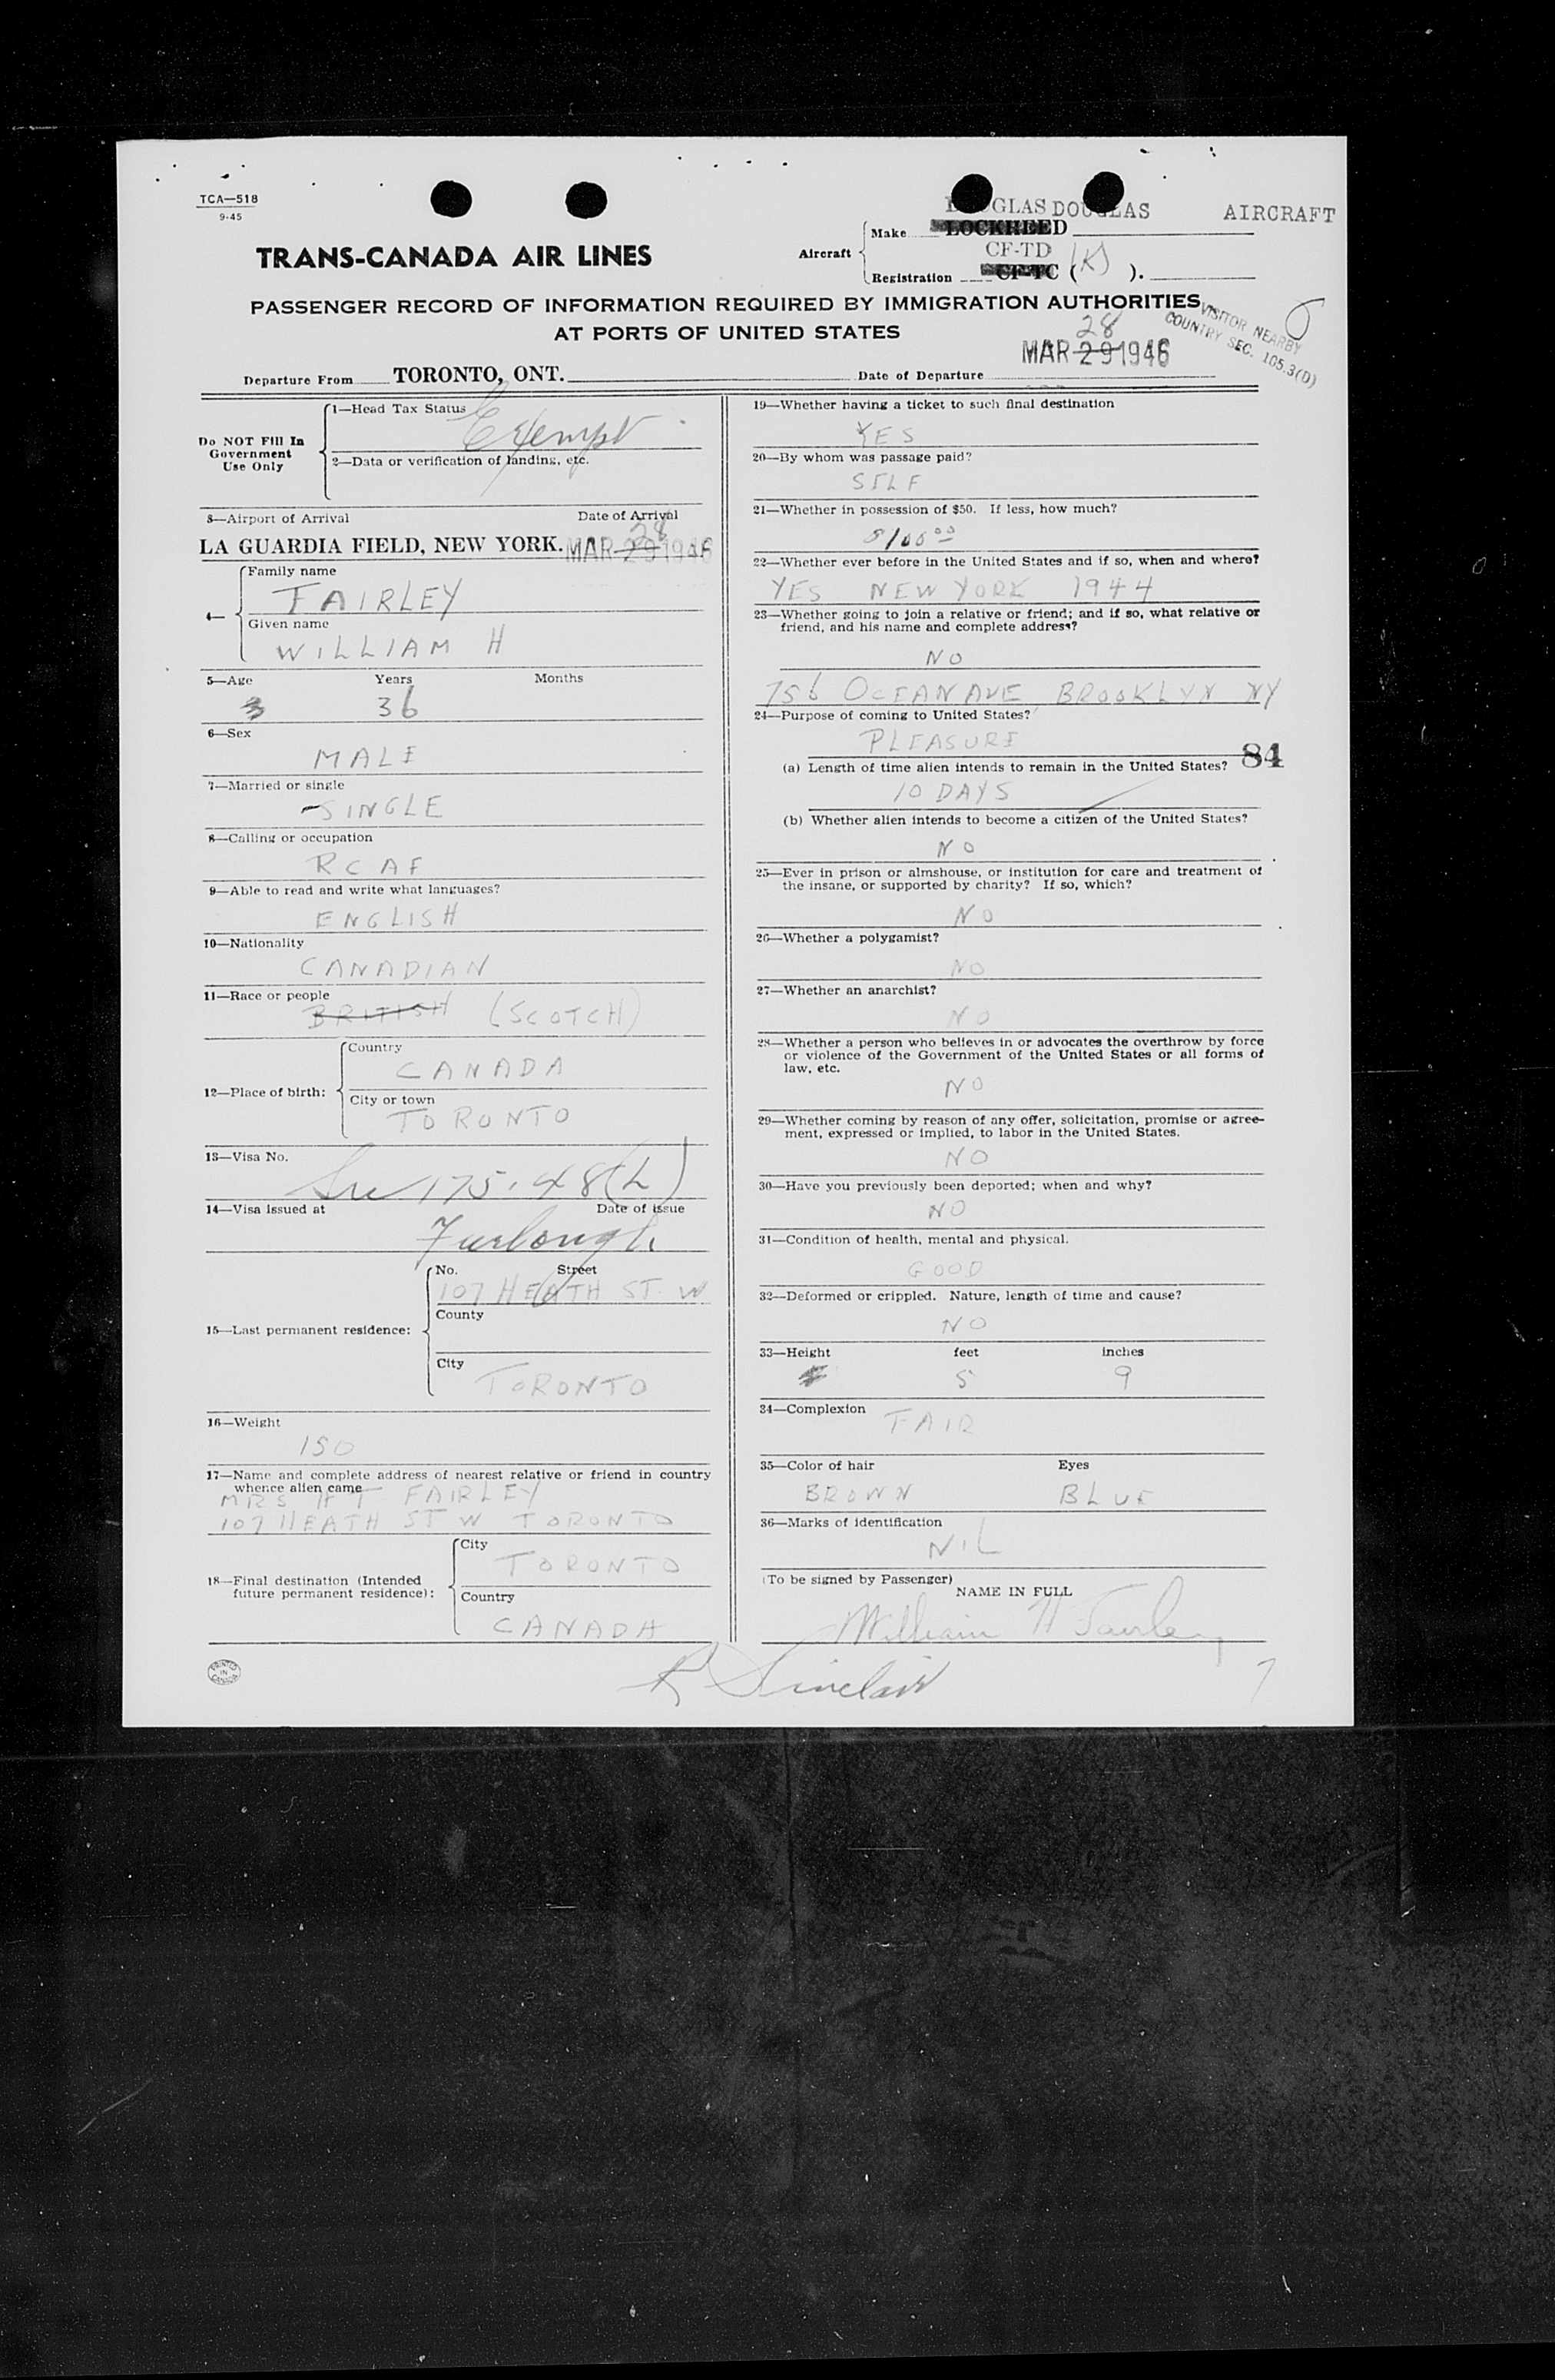 TCA—518
9-45
DOUGLAS DOUGLAS AIRCRAFT
TRANS-CANADA AIR LINES
Aircraft
Make LOCKHEED
CF-TD (K)
Registration CF-TC ( ).
PASSENGER RECORD OF INFORMATION REQUIRED BY IMMIGRATION AUTHORITIES
AT PORTS OF UNITED STATES
VISITOR NEARBY
COUNTRY SEC. 105.3(D)
28
MAR 29 1946
Departure From TORONTO, ONT. Date of Departure
Do NOT Fill In
Government
Use Only
1—Head Tax Status
Exempt
2—Data or verification of landing, etc.
3—Airport of Arrival Date of Arrival
28
LA GUARDIA FIELD, NEW YORK. MAR 29 1946
4—
Family name
FAIRLEY
Given name
WILLIAM H
5—Age Years Months
3 36
6—Sex
MALE
7—Married or single
SINGLE
8—Calling or occupation
RCAF
9—Able to read and write what languages?
ENGLISH
10—Nationality
CANADIAN
11—Race or people
BRITISH (SCOTCH)
12—Place of birth:
Country
CANADA
City or town
TORONTO
13—Visa No.
175.48(L)
14—Visa issued at Date of issue
Furlough
15—Last permanent residence:
No. Street
107 HEATH ST. W
County
City
TORONTO
16—Weight
150
17—Name and complete address of nearest relative or friend in country
whence alien came
MRS FAIRLEY
107 HEATH ST W TORONTO
18—Final destination (Intended
future permanent residence):
City
TORONTO
Country
CANADA
PRINTED
IN
CANADA
19—Whether having a ticket to such final destination
YES
20—By whom was passage paid?
SELF
21—Whether in possession of $50. If less, how much?
$100.00
22—Whether ever before in the United States and if so, when and where?
YES NEW YORK 1944
23—Whether going to join a relative or friend; and if so, what relative or
friend, and his name and complete address?
NO
756 OCEAN AVE BROOKLYN NY
24—Purpose of coming to United States?
PLEASURE
84
(a) Length of time alien intends to remain in the United States?
10 DAYS
(b) Whether alien intends to become a citizen of the United States?
NO
25—Ever in prison or almshouse, or institution for care and treatment of
the insane, or supported by charity? If so, which?
NO
26—Whether a polygamist?
NO
27—Whether an anarchist?
NO
28—Whether a person who believes in or advocates the overthrow by force
or violence of the Government of the United States or all forms of
law, etc.
NO
29—Whether coming by reason of any offer, solicitation, promise or agree-
ment, expressed or implied, to labor in the United States.
NO
30—Have you previously been deported; when and why?
NO
31—Condition of health, mental and physical.
GOOD
32—Deformed or crippled. Nature, length of time and cause?
NO
33—Height feet inches
5 9
34—Complexion
FAIR
35—Color of hair Eyes
BROWN BLUE
36—Marks of identification
NIL
(To be signed by Passenger)
NAME IN FULL
William H Fairley
R Sinclair
7